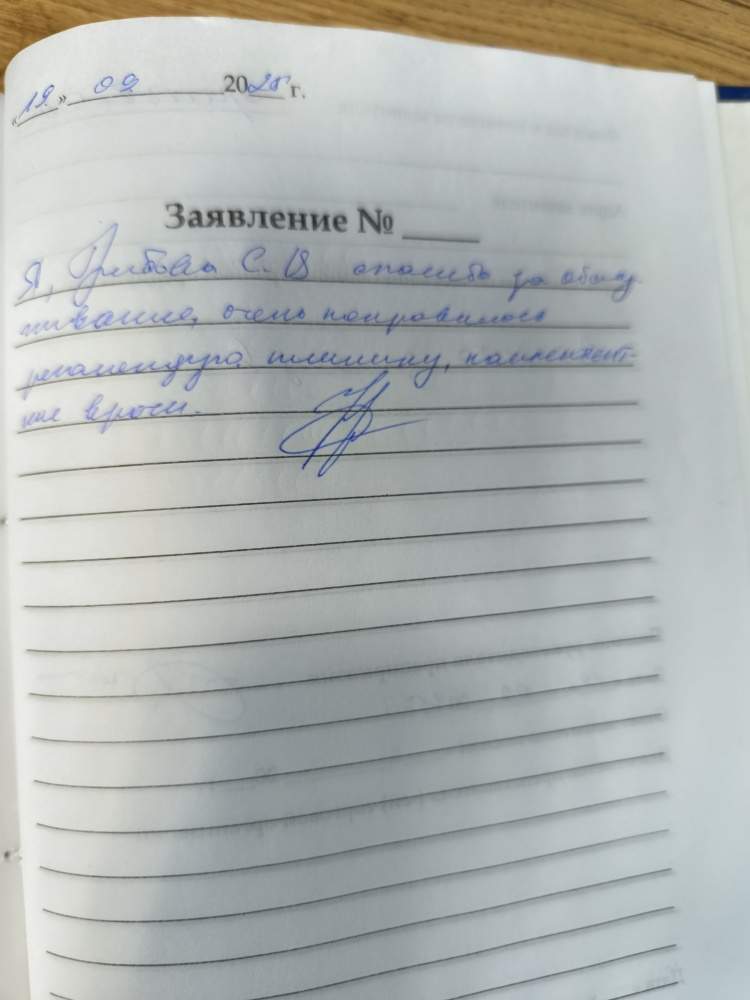 «19» 09 2025 г.
Заявление № ____
Я, Грибова С. В спасибо за обслу
живание, очень понравилось
рекомендую клинику, компетент-
ные врачи.